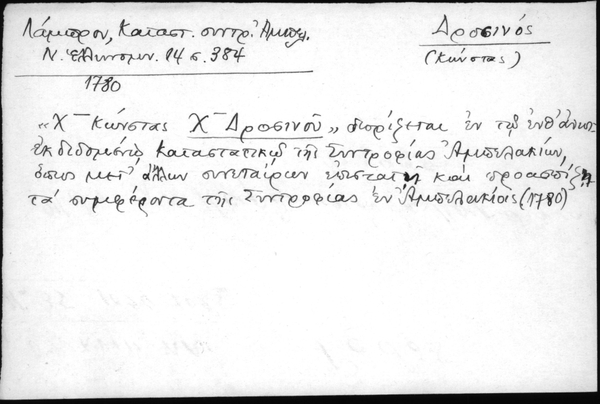 Λάμπρου, Καταστ. συντρ. Ἀμπελ.
Ν. Ἑλληνομν. 14 σ. 384
1780
Δροσινός
(Κώνστας)
«Χ— Κώνστας Χ— Δροσινοῦ» διορίζεται ἐν τῷ ἐνθ' ἀνωτ.
ἐκδιδομένῳ Καταστατικῷ τῆς Συντροφίας Ἀμπελακίων,
ὅπως μετ' ἄλλων συνεταίρων ἐπιστατῇ καὶ προασπίζῃ
τὰ συμφέροντα τῆς Συντροφίας ἐν Ἀμπελακίοις (1780)